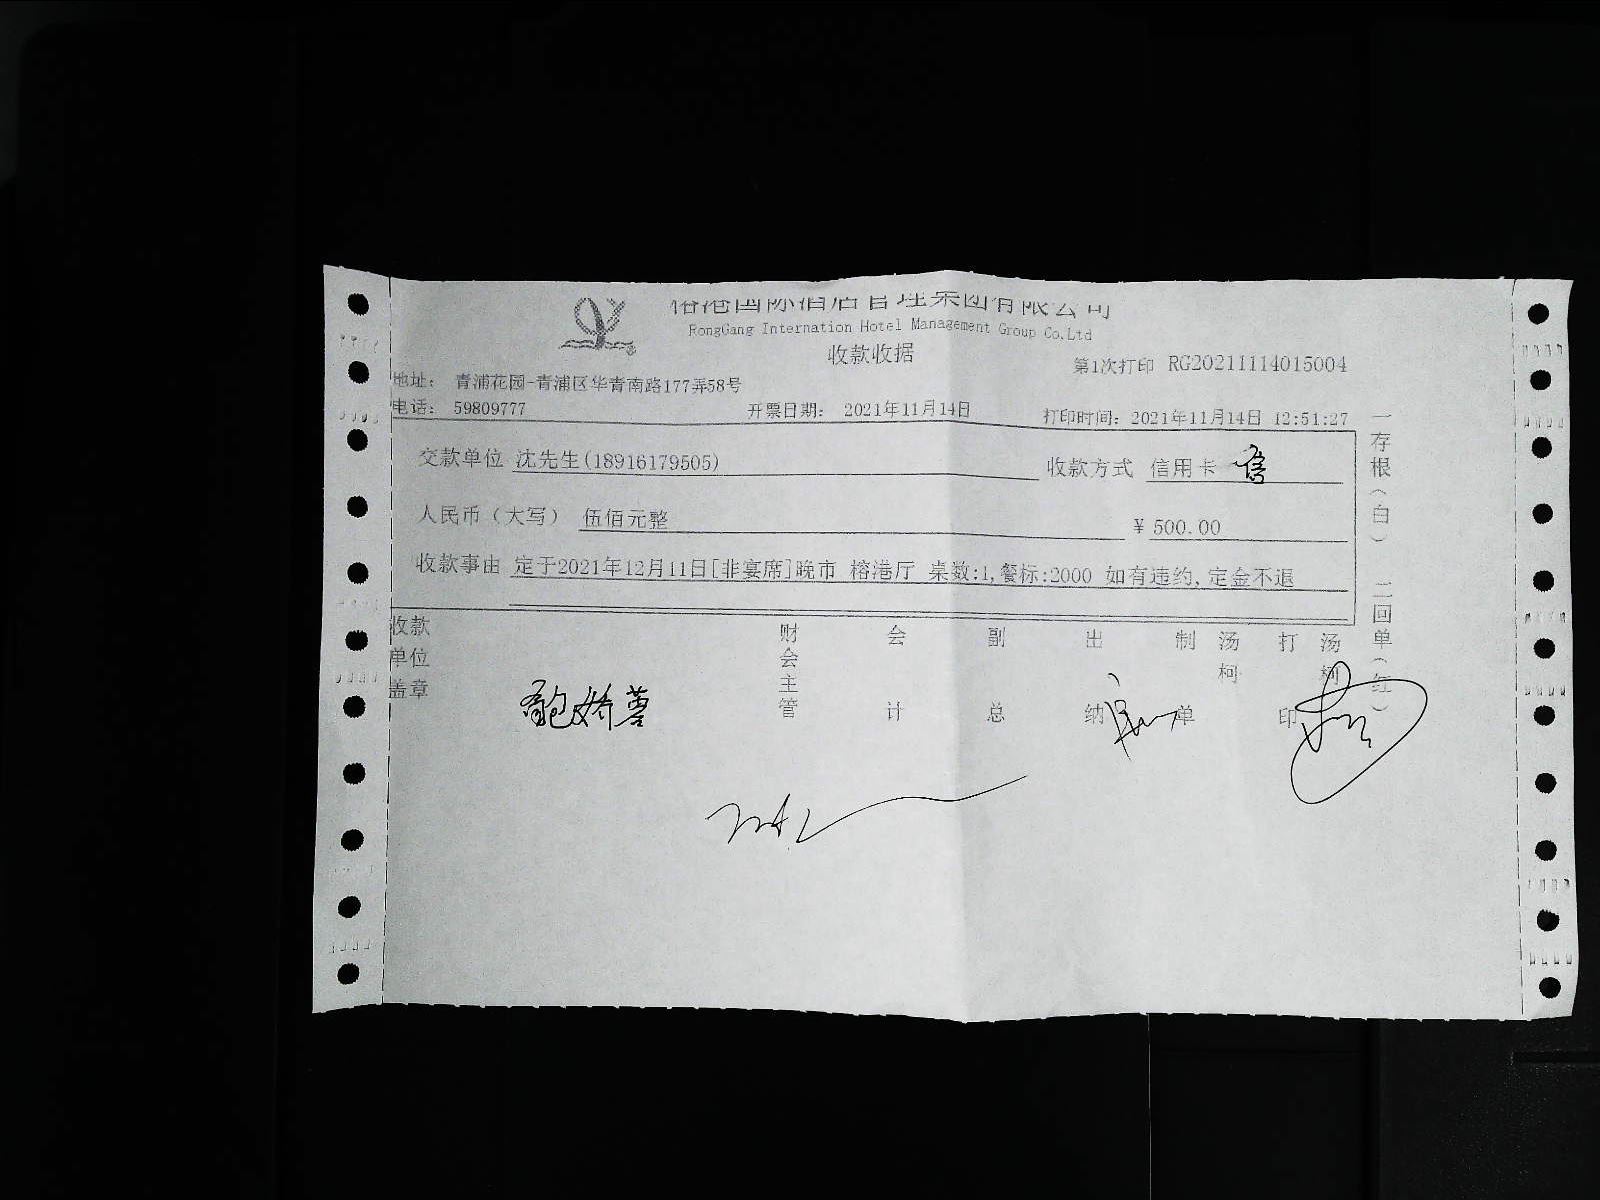 榕港国际酒店管理集团有限公司
RongGang Internation Hotel Management Group Co.Ltd
收款收据
第1次打印 RG20211114015004
地址： 青浦花园-青浦区华青南路177弄58号
电话： 59809777 开票日期： 2021年11月14日 打印时间：2021年11月14日 12:51:27
交款单位 沈先生(18916179505) 收款方式 信用卡 信
人民币（大写） 伍佰元整 ￥500.00
收款事由 定于2021年12月11日[非宴席]晚市 榕港厅 桌数:1,餐标:2000 如有违约,定金不退
一存根（白） 二回单（红）
收款单位盖章 财会主管 会计 副总 出纳 制单 汤柯 打印 汤柯